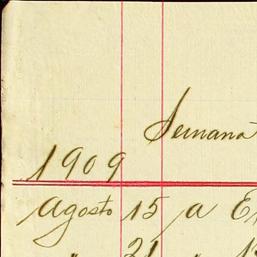 Semana
1909
agosto 15 a
" 21 "